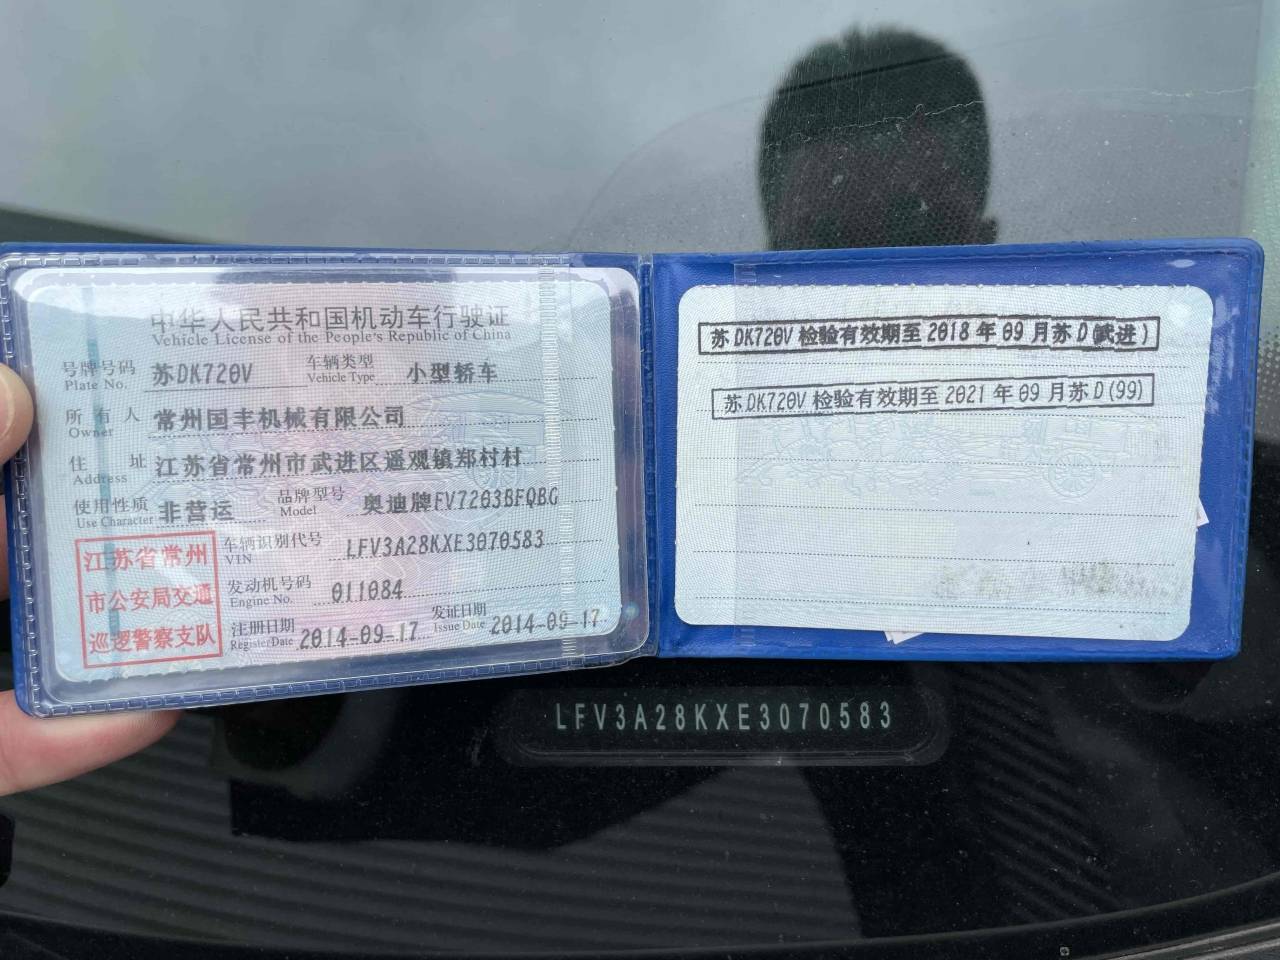 中华人民共和国机动车行驶证
Vehicle License of the People's Republic of China
号牌号码 苏DK720V 车辆类型 小型轿车
Plate No. Vehicle Type
所有人 常州国丰机械有限公司
Owner
住址 江苏省常州市武进区遥观镇郑村村
Address
使用性质 非营运 品牌型号 奥迪牌FV7203BFQBG
Use Character Model
江苏省常州
市公安局交通
巡逻警察支队
车辆识别代号 LFV3A28KXE3070583
VIN
发动机号码 011084
Engine No.
注册日期 2014-09-17 发证日期 2014-09-17
Register Date Issue Date
苏DK720V 检验有效期至2018年09月苏D(武进)
苏DK720V 检验有效期至2021年09月苏D(99)
LFV3A28KXE3070583